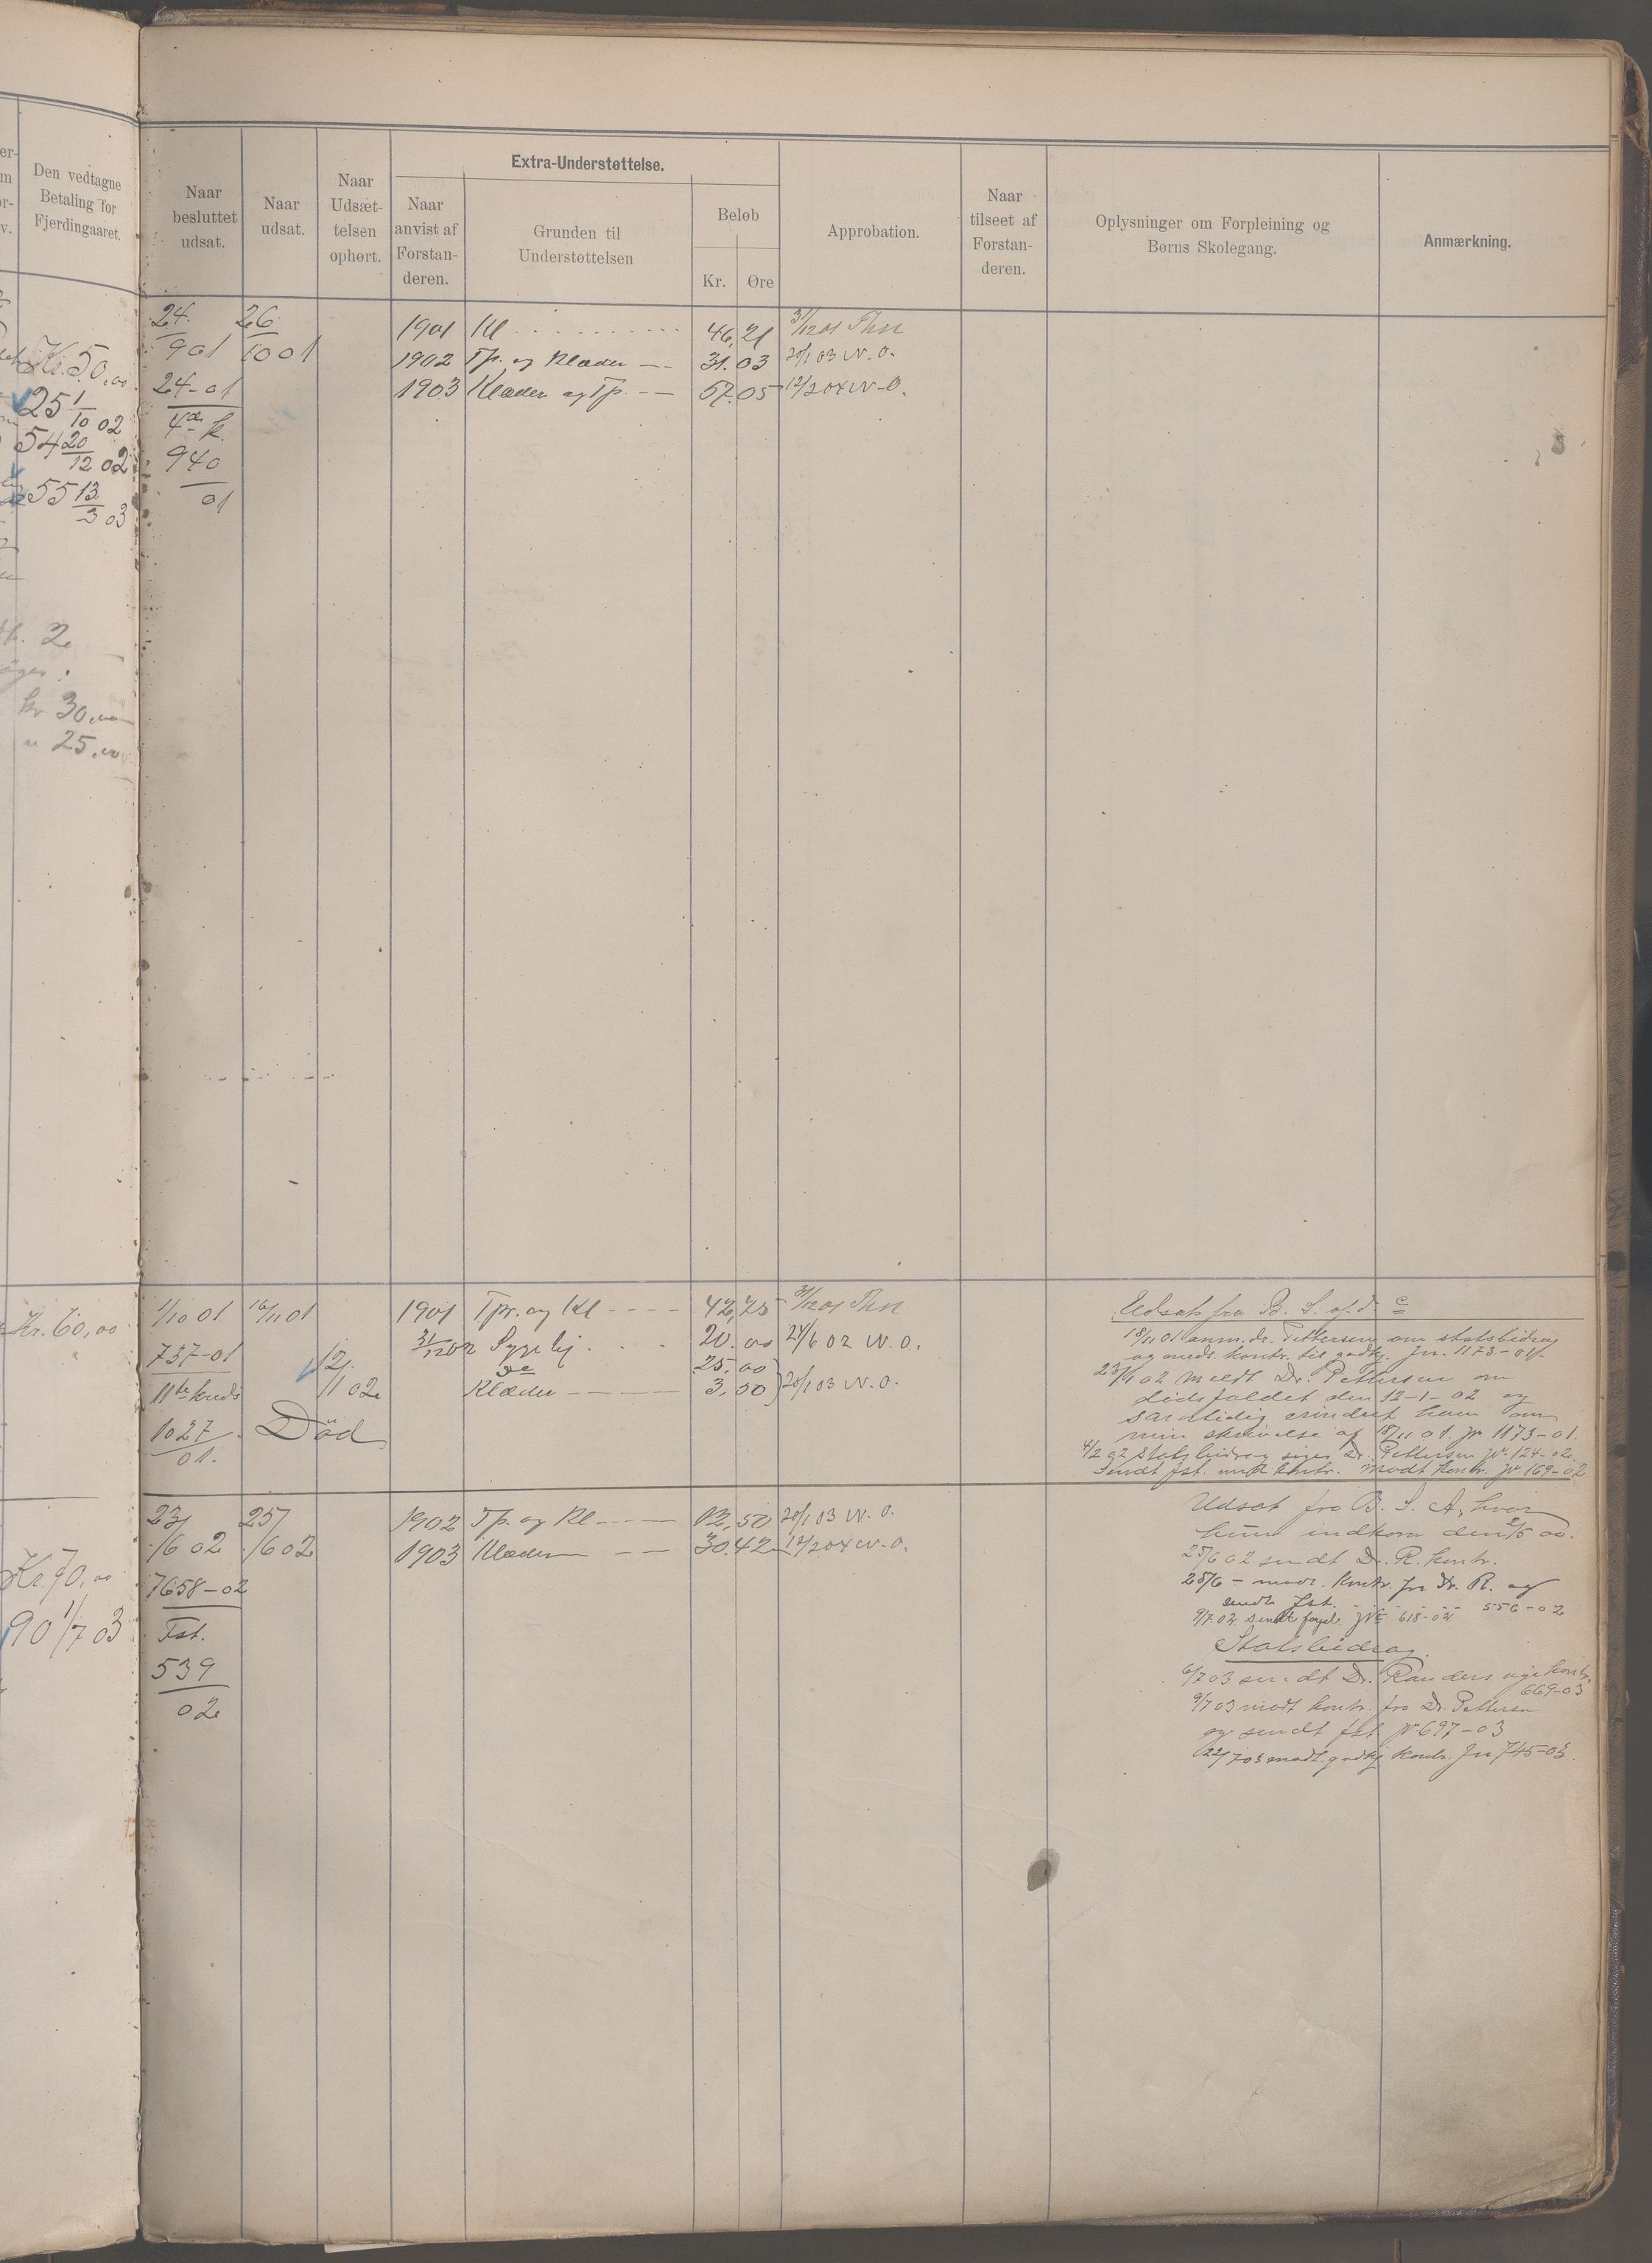 Den vedtagne
Betaling for
Fjerdingaaret.
Naar
besluttet
udsat.
Naar
udsat.
Naar
Udsæt-
telsen
ophørt.
Extra-Understøttelse.
Naar
anvist af
Forstan-
deren.
Grunden til
Understøttelsen
Beløb
Kr.
Øre
Approbation.
Naar
tilseet af
Forstan-
deren.
Oplysninger om Forpleining og
Børns Skolegang.
Anmærkning.
Kr. 50,00
25 1/10 02
54 20/12 02
55 13/3 03
kr 30,00
" 25,00
24/9 01 26/10 01
24-01
940
01
1901 Kl 46,21 31/12 01
1902 Tp. og Klæder 31.03 20/1 03 N. O.
1903 Klæder og Tp. 57.05 12/2 04 N-O.
Kr. 60,00
1/10 01 16/11 01
737-01
12/1 02
1027
01.
Död
1901 Tpr. og Kl 42,75 31/12 01
31/12 02 Sygelej 20.00 24/6 02 N. O.
25,00
Klæder 3,50 20/1 03 N. O.
Udsat fra B. S. af d.
18/11 01 anm. dr. Pettersen om statsbidrag
og meds. kontr. til godkj. Jn. 1173-01
23/1 02 Meldt Dr. Pettersen om
dødsfaldet den 12-1-02 og
samtidig erindret ham om
min skrivelse af 18/11 01. Jr 1173-01.
4/2 02 Statsbidrag Dr. Pettersen Jr. 124-02.
Sendt fst. kontr. Modt kontr. Jr 169-02
Kr. 70,00
90 1/7 03
23/6 02 25/6 02
7658-02
Fst.
539
02
1902 Tp. og Kl ,50 20/1 03 N. O.
1903 Klæder 30.42 12/2 04 N-O.
Udsat fra B. S. A, hvor
hun indkom den 2/5 00.
25/6 02 sendt Dr. R. kontr.
28/6 - modt. kontr. fra Dr. R. og
sendt fst. 556-02
9/7 02 sendt 618-02
Statsbidrag
6/7 03 sendt Dr. Randers nye kontr.
669-03
9/7 03 modt kontr. fra Dr. Pettersen
og sendt fst Jr 697-03
22/7 03 modt. godkj. kontr. Jn 745-03.